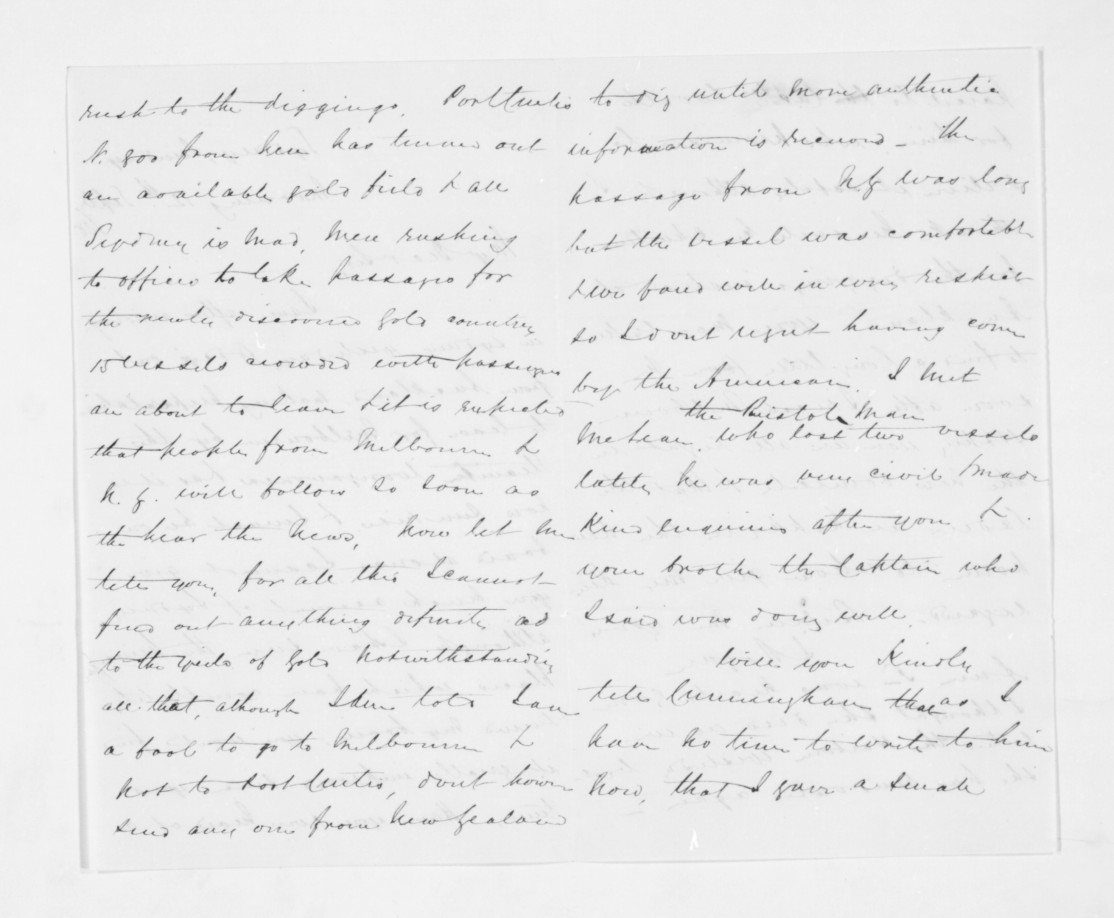 rush to the diggings. Port Curtis
N. 900 from here has turned out
an available gold field & all
Sydney is mad, Men rushing
to offices to take passages for
the newly discovered Gold country
15 vessels crowded with passengers
are about to leave & it is expected
that people from Melbourne &
N. Z. will follow so soon as
the hear the News, Now let me
tell you, for all this I cannot
find out anything definite as
to the yield of Gold notwithstanding
all that, although I am told I am
a fool to go to Melbourne &
not to Port Curtis, don't however
send any one from New Zealand
to dig until more authentic
information is received - The
passage from N.Z was long
but the vessel was comfortable
& we fared well in every respect
so I dont regret having come
by the American. I met
the Bristol Man
McLean, who lost two vessels
lately he was very civil & made
Kind enquiries after you &
your brother the Captain who
I said was doing well.
Will you Kindly
tell Cunningham that as I
have no time to write to him
now, that I gave a small